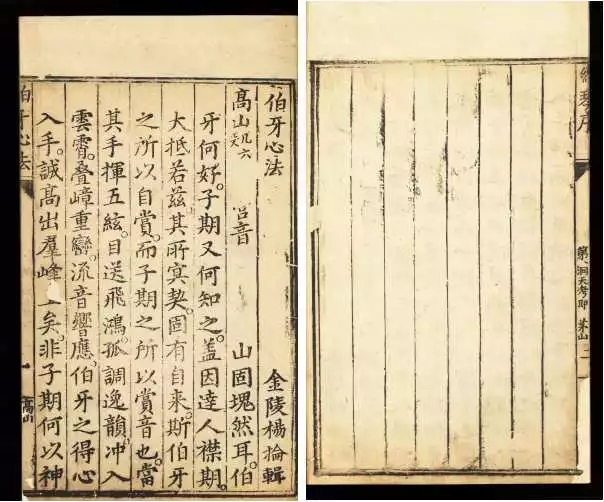 伯牙心法 金陵楊掄輯
高山 凡六 音 山固塊然耳伯
牙何好。子期又何知之。蓋因達人襟期。
大抵若茲其所冥契。固有自来。斯伯牙
之所以自賞。而子期之所以賞音也。當
其手揮五絃。目送飛鴻。孤調逸韻。冲入
雲霄。叠嶂重巒。流音響應。伯牙之得心
入手。誠高出羣峰上矣。非子期何以神
伯牙心法 一 高山
琴序 第 洞天考 茅山 二